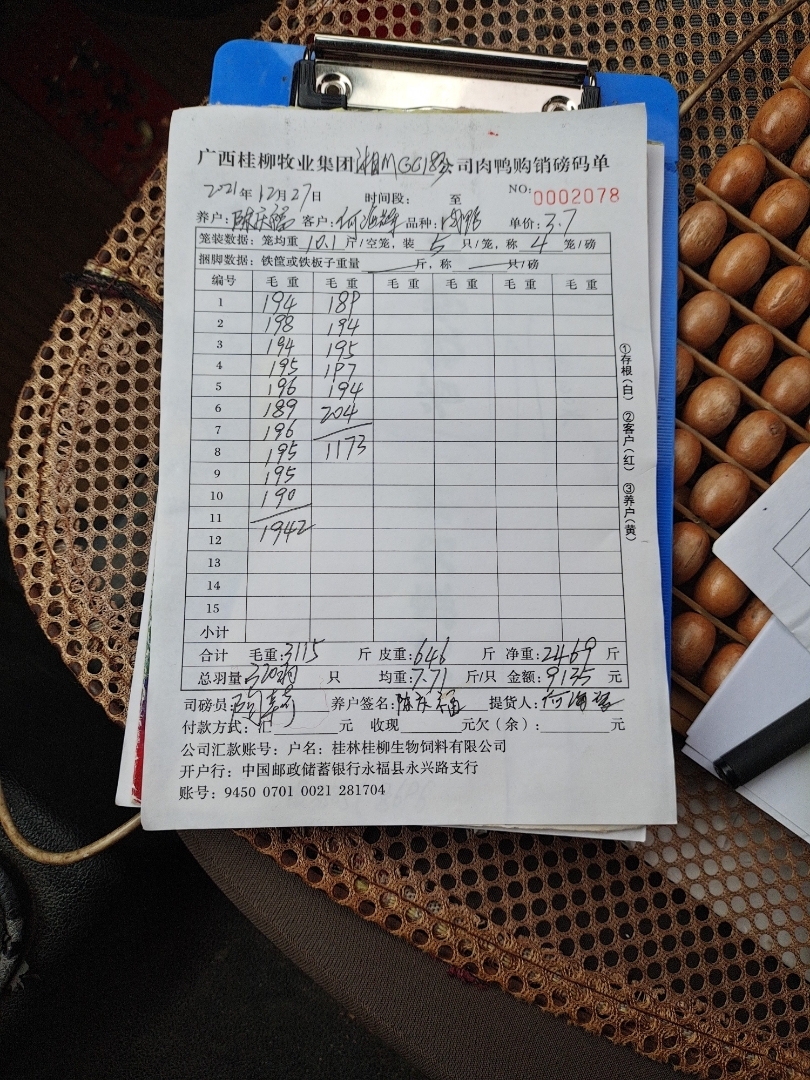 广西桂柳牧业集团湘MGG183公司肉鸭购销磅码单
2021年12月27日 时间段: 至 NO: 0002078
养户: 陈庆福 客户: 何海 品种: 肉鸭 单价: 3.7
笼装数据: 笼均重 10.1 斤/空笼, 装 5 只/笼, 称 4 笼/磅
捆脚数据: 铁筐或铁板子重量 斤, 称 只/磅
编号 毛重 毛重 毛重 毛重 毛重 毛重
1 194 189
2 198 194
3 194 195
4 195 197
5 196 194
6 189 204
7 196
8 195 1173
9 195
10 190
11
12 1942
13
14
15
小计
合计 毛重: 3115 斤 皮重: 646 斤 净重: 2469 斤
总羽量 320羽 只 均重: 7.71 斤/只 金额: 9135 元
司磅员: 养户签名: 陈庆福 提货人: 何海
付款方式: 汇 元 收现 元 欠(余): 元
公司汇款账号: 户名: 桂林桂柳生物饲料有限公司
开户行: 中国邮政储蓄银行永福县永兴路支行
账号: 9450 0701 0021 281704
①存根(白) ②客户(红) ③养户(黄)